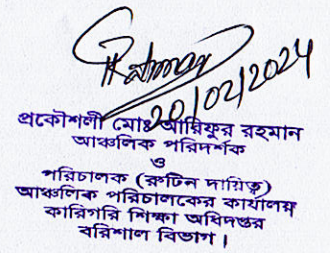 20/02/2024
প্রকৌশলী মোঃ আরিফুর রহমান
আঞ্চলিক পরিদর্শক
ও
পরিচালক (রুটিন দায়িত্ব)
আঞ্চলিক পরিচালকের কার্যালয়
কারিগরি শিক্ষা অধিদপ্তর
বরিশাল বিভাগ।